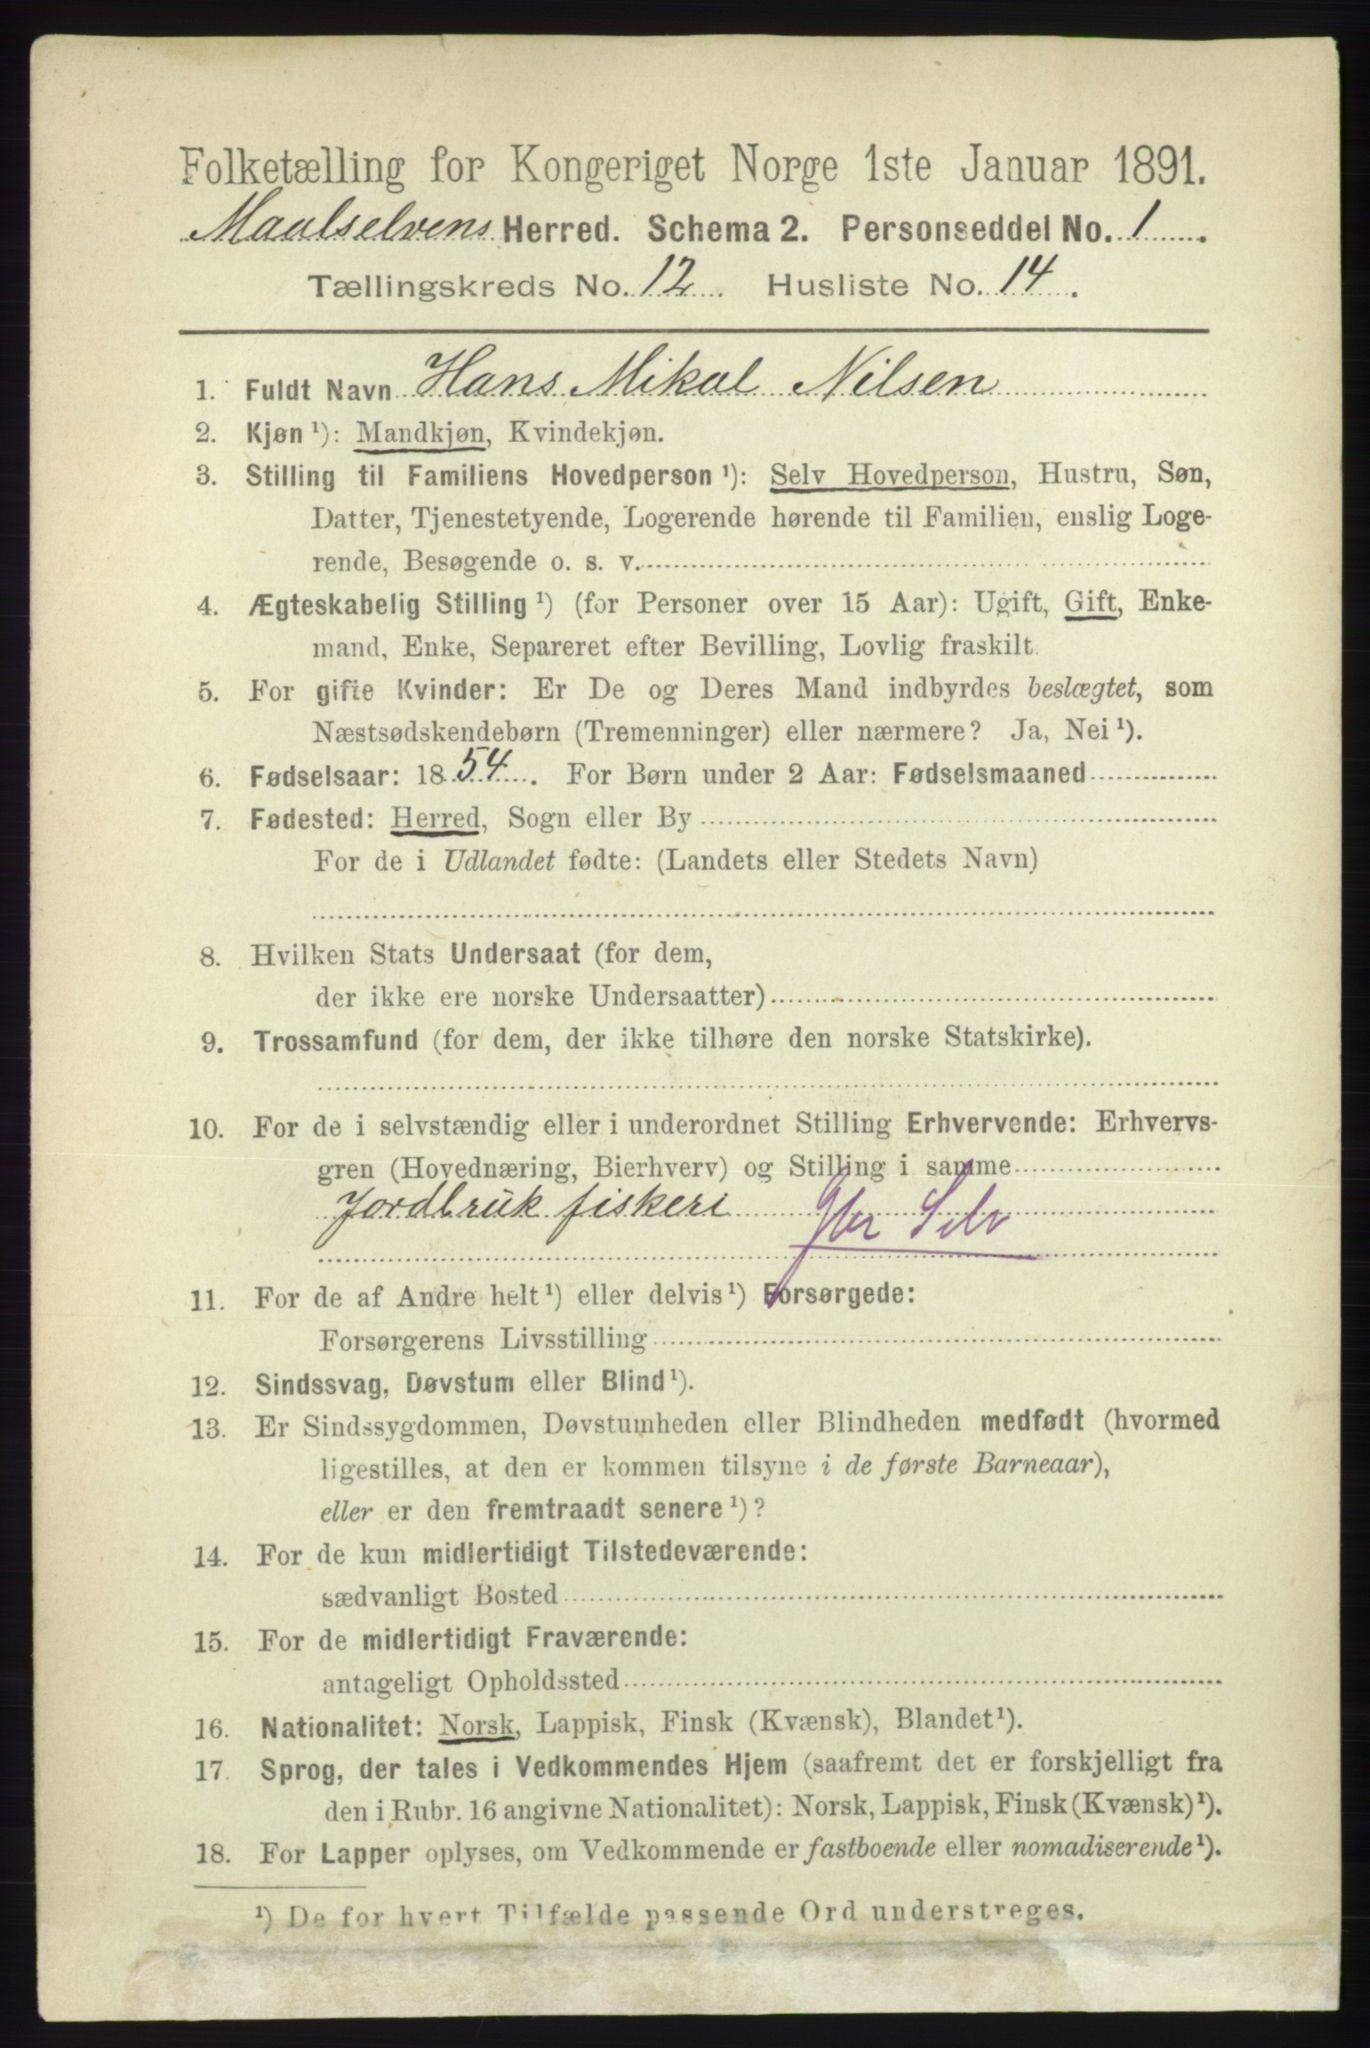 Folketælling for Kongeriget Norge 1ste Januar 1891.
Maalselvens Herred. Schema 2. Personseddel No. 1.
Tællingskreds No. 12. Husliste No. 14.
1. Fuldt Navn Hans Mikal Nilsen
2. Kjøn ¹): Mandkjøn, Kvindekjøn.
3. Stilling til Familiens Hovedperson ¹): Selv Hovedperson, Hustru, Søn,
Datter, Tjenestetyende, Logerende hørende til Familien, enslig Loge-
rende, Besøgende o. s. v.
4. Ægteskabelig Stilling ¹) (for Personer over 15 Aar): Ugift, Gift, Enke-
mand, Enke, Separeret efter Bevilling, Lovlig fraskilt.
5. For gifte Kvinder: Er De og Deres Mand indbyrdes beslægtet, som
Næstsødskendebørn (Tremenninger) eller nærmere? Ja, Nei ¹).
6. Fødselsaar: 1854. For Børn under 2 Aar: Fødselsmaaned
7. Fødested: Herred, Sogn eller By
For de i Udlandet fødte: (Landets eller Stedets Navn)
8. Hvilken Stats Undersaat (for dem,
der ikke ere norske Undersaatter)
9. Trossamfund (for dem, der ikke tilhøre den norske Statskirke).
10. For de i selvstændig eller i underordnet Stilling Erhvervende: Erhvervs-
gren (Hovednæring, Bierhverv) og Stilling i samme
Jordbruk fiskeri Gbr Selv
11. For de af Andre helt ¹) eller delvis ¹) Forsørgede:
Forsørgerens Livsstilling
12. Sindssvag, Døvstum eller Blind ¹).
13. Er Sindssygdommen, Døvstumheden eller Blindheden medfødt (hvormed
ligestilles, at den er kommen tilsyne i de første Barneaar),
eller er den fremtraadt senere ¹)?
14. For de kun midlertidigt Tilstedeværende:
sædvanligt Bosted
15. For de midlertidigt Fraværende:
antageligt Opholdssted
16. Nationalitet: Norsk, Lappisk, Finsk (Kvænsk), Blandet ¹).
17. Sprog, der tales i Vedkommendes Hjem (saafremt det er forskjelligt fra
den i Rubr. 16 angivne Nationalitet): Norsk, Lappisk, Finsk (Kvænsk) ¹).
18. For Lapper oplyses, om Vedkommende er fastboende eller nomadiserende ¹).
¹) De for hvert Tilfælde passende Ord understreges.